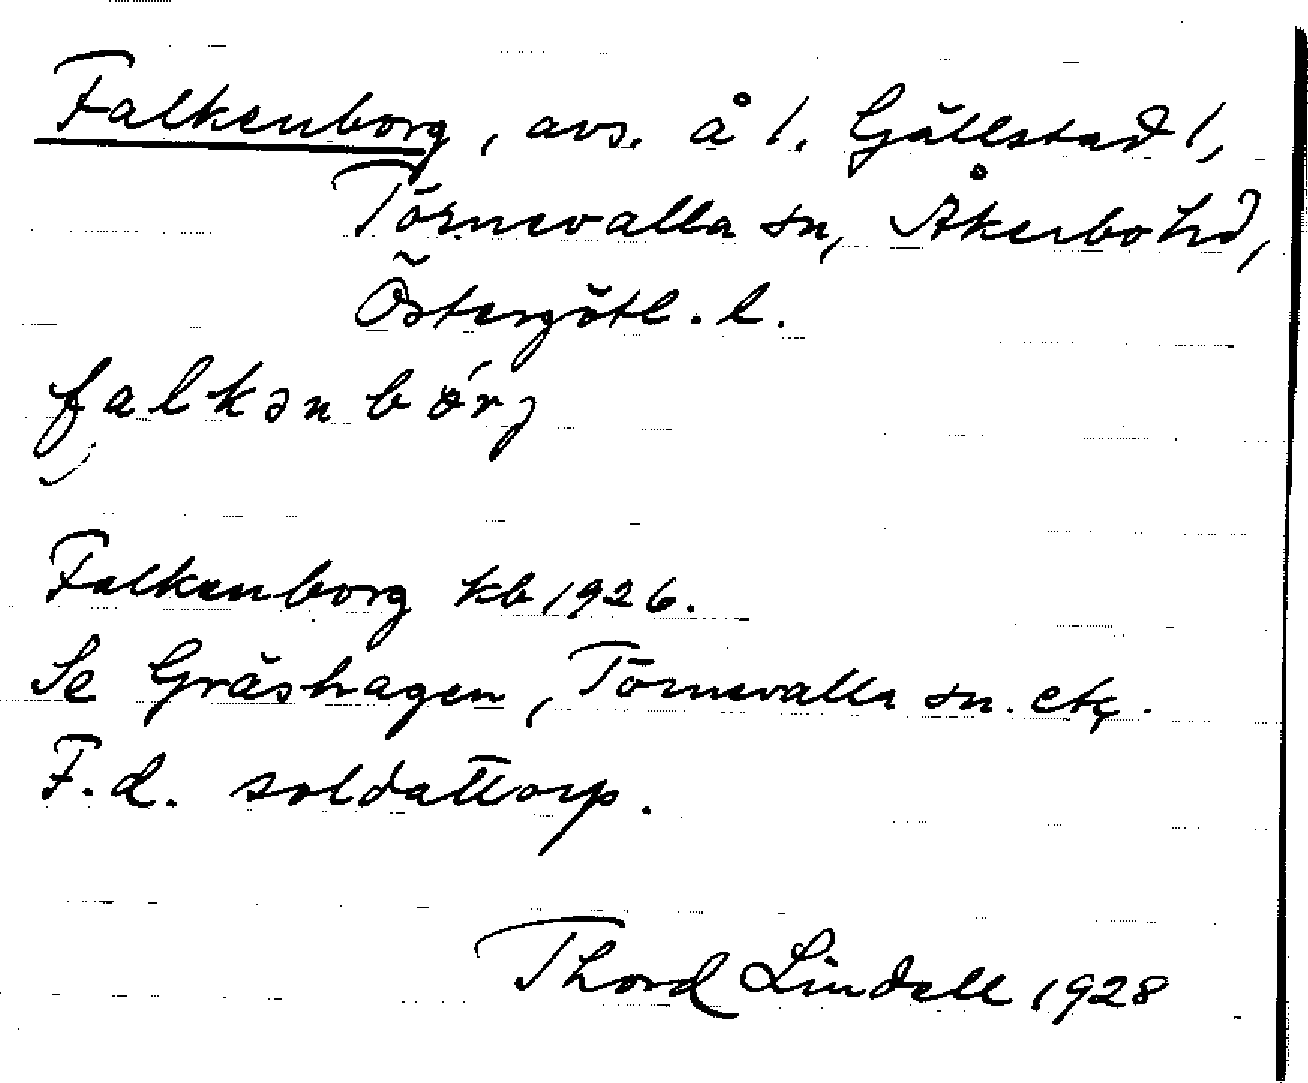 Falkenborg, avs. å 1. Gällstad 1,
Törnevalla sn, Åkerbo hd,
Östergötl. l.
falkənbórj
Falkenborg kb 1926.
Se Gräshagen, Törnevalla sn. etc.
F.d. soldattorp.
Thord Lindell 1928